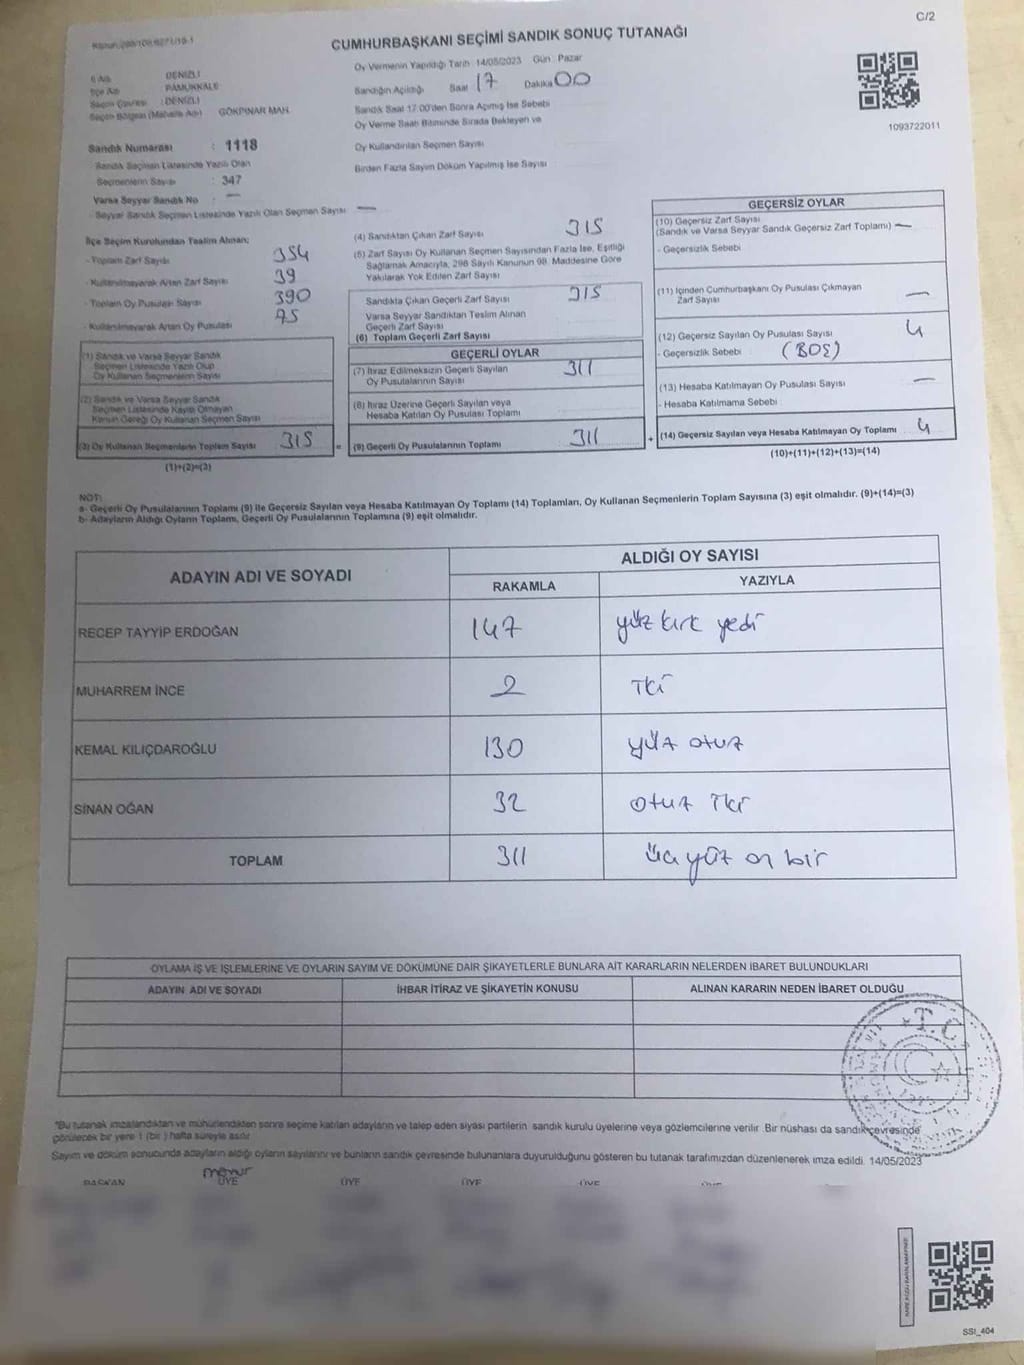 C/2
CUMHURBAŞKANI SEÇİMİ SANDIK SONUÇ TUTANAĞI
Oy Vermenin Yapıldığı Tarih : 14/05/2023 Gün : Pazar
Sandığın Açıldığı Saat 17 Dakika 00
Sandık Saat 17:00'den Sonra Açılmış İse Sebebi
Oy Verme Saati Bitiminde Sırada Bekleyen ve
Oy Kullandırılan Seçmen Sayısı
Birden Fazla Sayım Döküm Yapılmış İse Sayısı
1093722011
İl Adı : DENİZLİ
İlçe Adı : PAMUKKALE
Seçim Çevresi : DENİZLİ
Seçim Bölgesi (Mahalle Adı) : GÖKPINAR MAH.
Sandık Numarası : 1118
Sandık Seçmen Listesinde Yazılı Olan
Seçmenlerin Sayısı : 347
Varsa Seyyar Sandık No : —
- Seyyar Sandık Seçmen Listesinde Yazılı Olan Seçmen Sayısı —
İlçe Seçim Kurulundan Teslim Alınan;
- Toplam Zarf Sayısı 354
- Kullanılmayarak Artan Zarf Sayısı 39
- Toplam Oy Pusulası Sayısı 390
- Kullanılmayarak Artan Oy Pusulası 75
(1) Sandık ve Varsa Seyyar Sandık
Seçmen Listesinde Yazılı Olup
Oy Kullanan Seçmenlerin Sayısı
(2) Sandık ve Varsa Seyyar Sandık
Seçmen Listesinde Kaydı Olmayan
Kanun Gereği Oy Kullanan Seçmen Sayısı
(3) Oy Kullanan Seçmenlerin Toplam Sayısı 315
(1)+(2)=(3)
(4) Sandıktan Çıkan Zarf Sayısı 315
(5) Zarf Sayısı Oy Kullanan Seçmen Sayısından Fazla İse, Eşitliği
Sağlamak Amacıyla, 298 Sayılı Kanunun 98. Maddesine Göre
Yakılarak Yok Edilen Zarf Sayısı
Sandıkta Çıkan Geçerli Zarf Sayısı 315
Varsa Seyyar Sandıktan Teslim Alınan
Geçerli Zarf Sayısı
(6) Toplam Geçerli Zarf Sayısı
GEÇERLİ OYLAR
(7) İtiraz Edilmeksizin Geçerli Sayılan
Oy Pusulalarının Sayısı 311
(8) İtiraz Üzerine Geçerli Sayılan veya
Hesaba Katılan Oy Pusulası Toplamı
= (9) Geçerli Oy Pusulalarının Toplamı 311
GEÇERSİZ OYLAR
(10) Geçersiz Zarf Sayısı
(Sandık ve Varsa Seyyar Sandık Geçersiz Zarf Toplamı) —
- Geçersizlik Sebebi
(11) İçinden Cumhurbaşkanı Oy Pusulası Çıkmayan
Zarf Sayısı —
(12) Geçersiz Sayılan Oy Pusulası Sayısı 4
- Geçersizlik Sebebi (BOŞ)
(13) Hesaba Katılmayan Oy Pusulası Sayısı —
- Hesaba Katılmama Sebebi
+ (14) Geçersiz Sayılan veya Hesaba Katılmayan Oy Toplamı 4
(10)+(11)+(12)+(13)=(14)
NOT:
a- Geçerli Oy Pusulalarının Toplamı (9) ile Geçersiz Sayılan veya Hesaba Katılmayan Oy Toplamı (14) Toplamları, Oy Kullanan Seçmenlerin Toplam Sayısına (3) eşit olmalıdır. (9)+(14)=(3)
b- Adayların Aldığı Oyların Toplamı, Geçerli Oy Pusulalarının Toplamına (9) eşit olmalıdır.
ADAYIN ADI VE SOYADI ALDIĞI OY SAYISI
RAKAMLA YAZIYLA
RECEP TAYYİP ERDOĞAN 147 yüz kırk yedi
MUHARREM İNCE 2 İki
KEMAL KILIÇDAROĞLU 130 yüz otuz
SİNAN OĞAN 32 otuz iki
TOPLAM 311 üçyüz on bir
OYLAMA İŞ VE İŞLEMLERİNE VE OYLARIN SAYIM VE DÖKÜMÜNE DAİR ŞİKAYETLERLE BUNLARA AİT KARARLARIN NELERDEN İBARET BULUNDUKLARI
ADAYIN ADI VE SOYADI İHBAR İTİRAZ VE ŞİKAYETİN KONUSU ALINAN KARARIN NEDEN İBARET OLDUĞU
T.C.
"Bu tutanak imzalandıktan ve mühürlendikten sonra seçime katılan adayların ve talep eden siyasi partilerin sandık kurulu üyelerine veya gözlemcilerine verilir. Bir nüshası da sandık çevresinde
görülecek bir yere 1 (bir ) hafta süreyle asılır
Sayım ve döküm sonucunda adayların aldığı oyların sayılarını ve bunların sandık çevresinde bulunanlara duyurulduğunu gösteren bu tutanak tarafımızdan düzenlenerek imza edildi. 14/05/2023
BAŞKAN ÜYE ÜYE ÜYE ÜYE
SSI_404